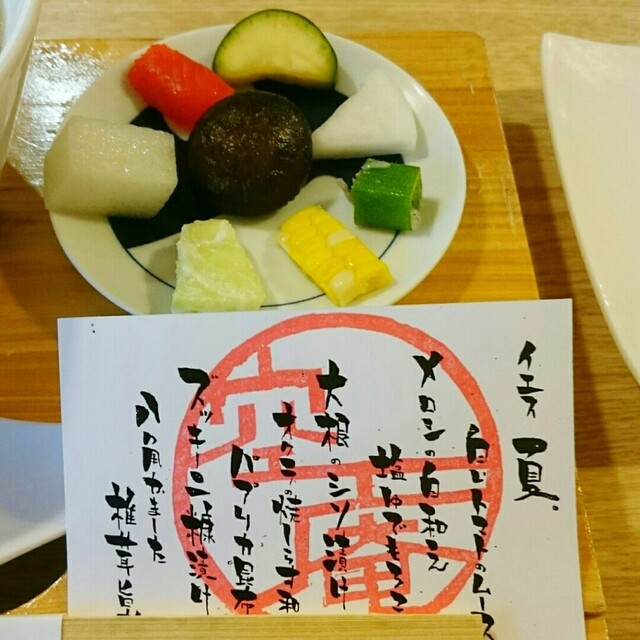 イエス夏。
白いトマトのムース
メロンの白和え
塩ゆでもろこ
大根のシソ漬け
オクラの焼〜す和
パプリカ昆布
ズッキーニ糠漬け
八角がきいた
椎茸旨
空
庵